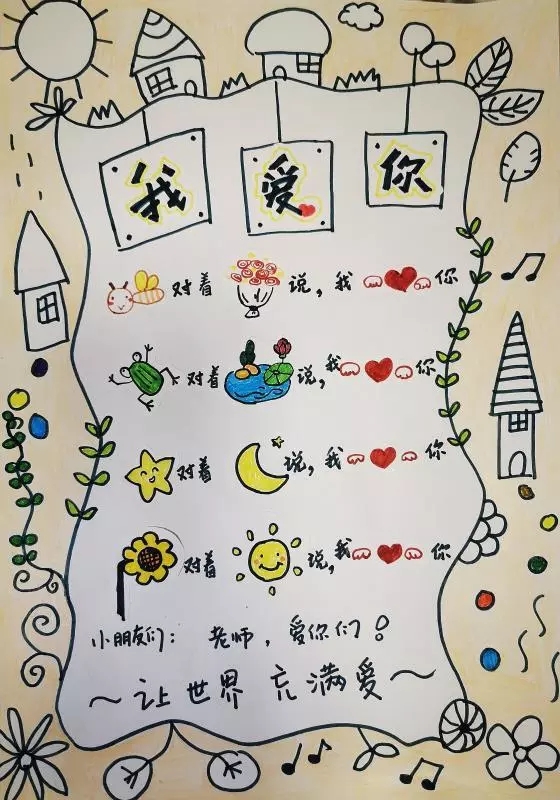 我 爱 你
对着 说，我 你
对着 说，我 你
对着 说，我 你
对着 说，我 你
小朋友们： 老师，爱你们！
～让世界充满爱～